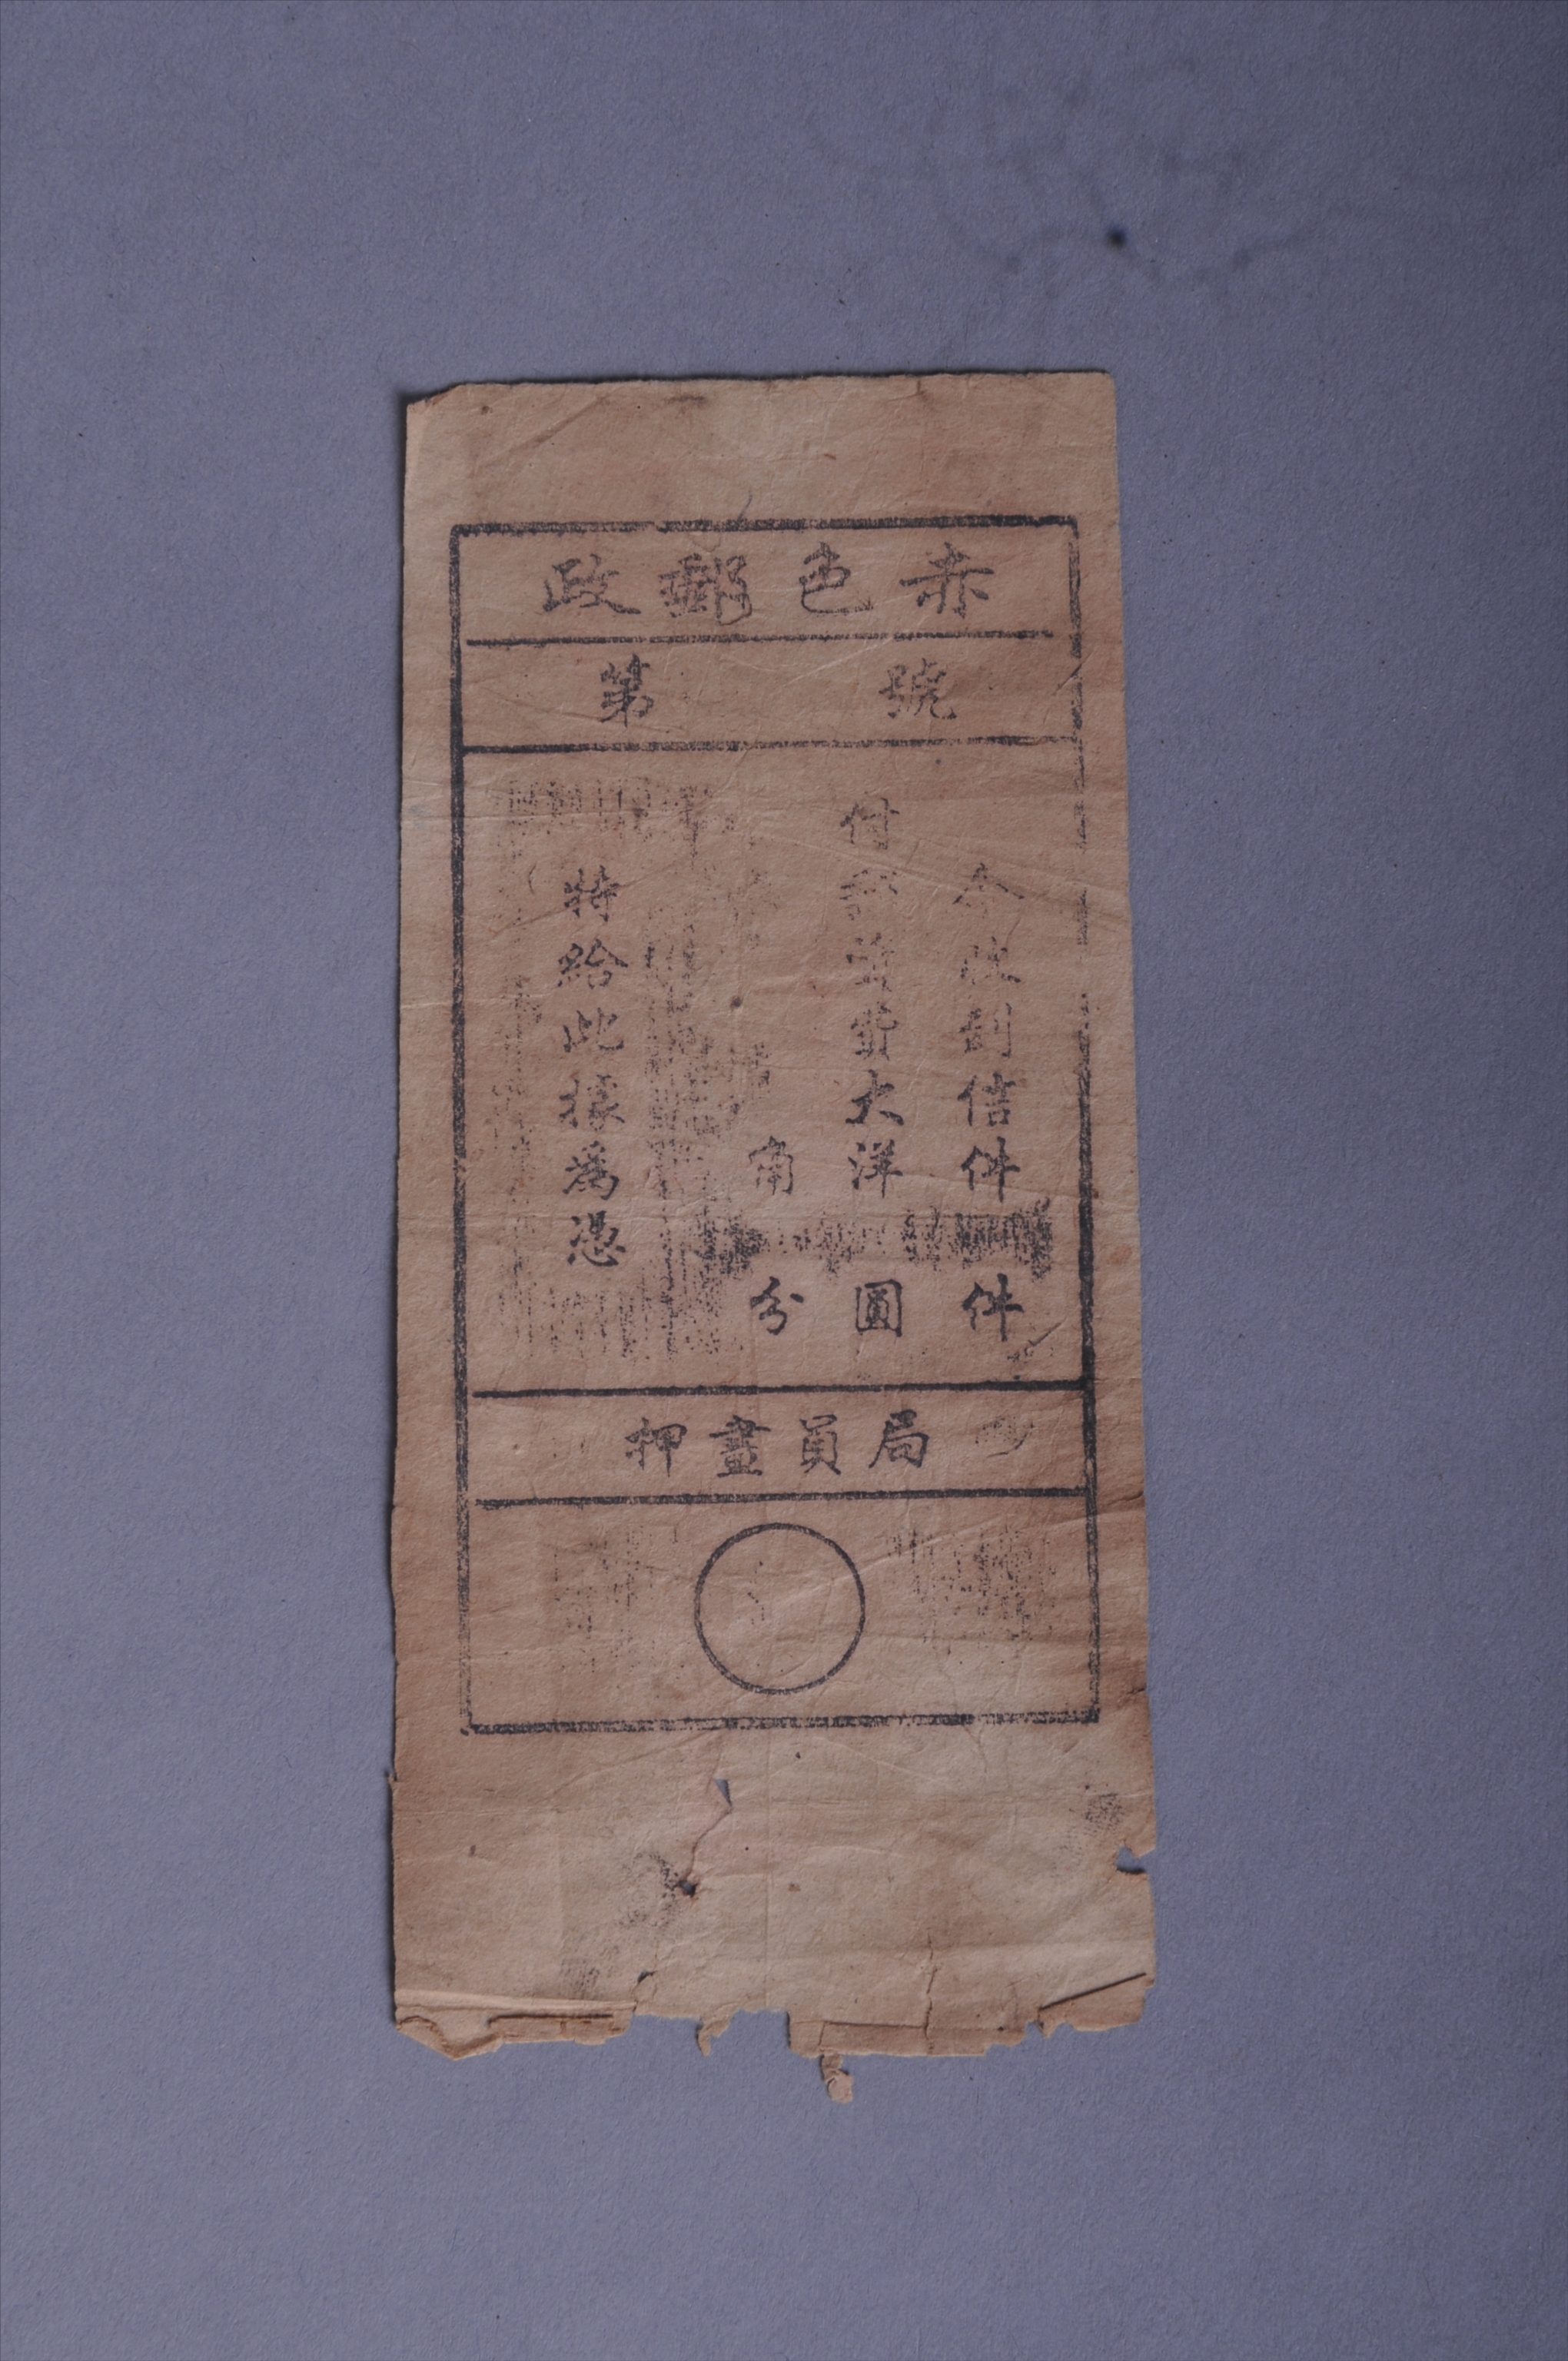 赤色郵政
第 號
今收到信件 件
付郵資訖大洋 圓
角 分
特給此據為憑
局員畫押